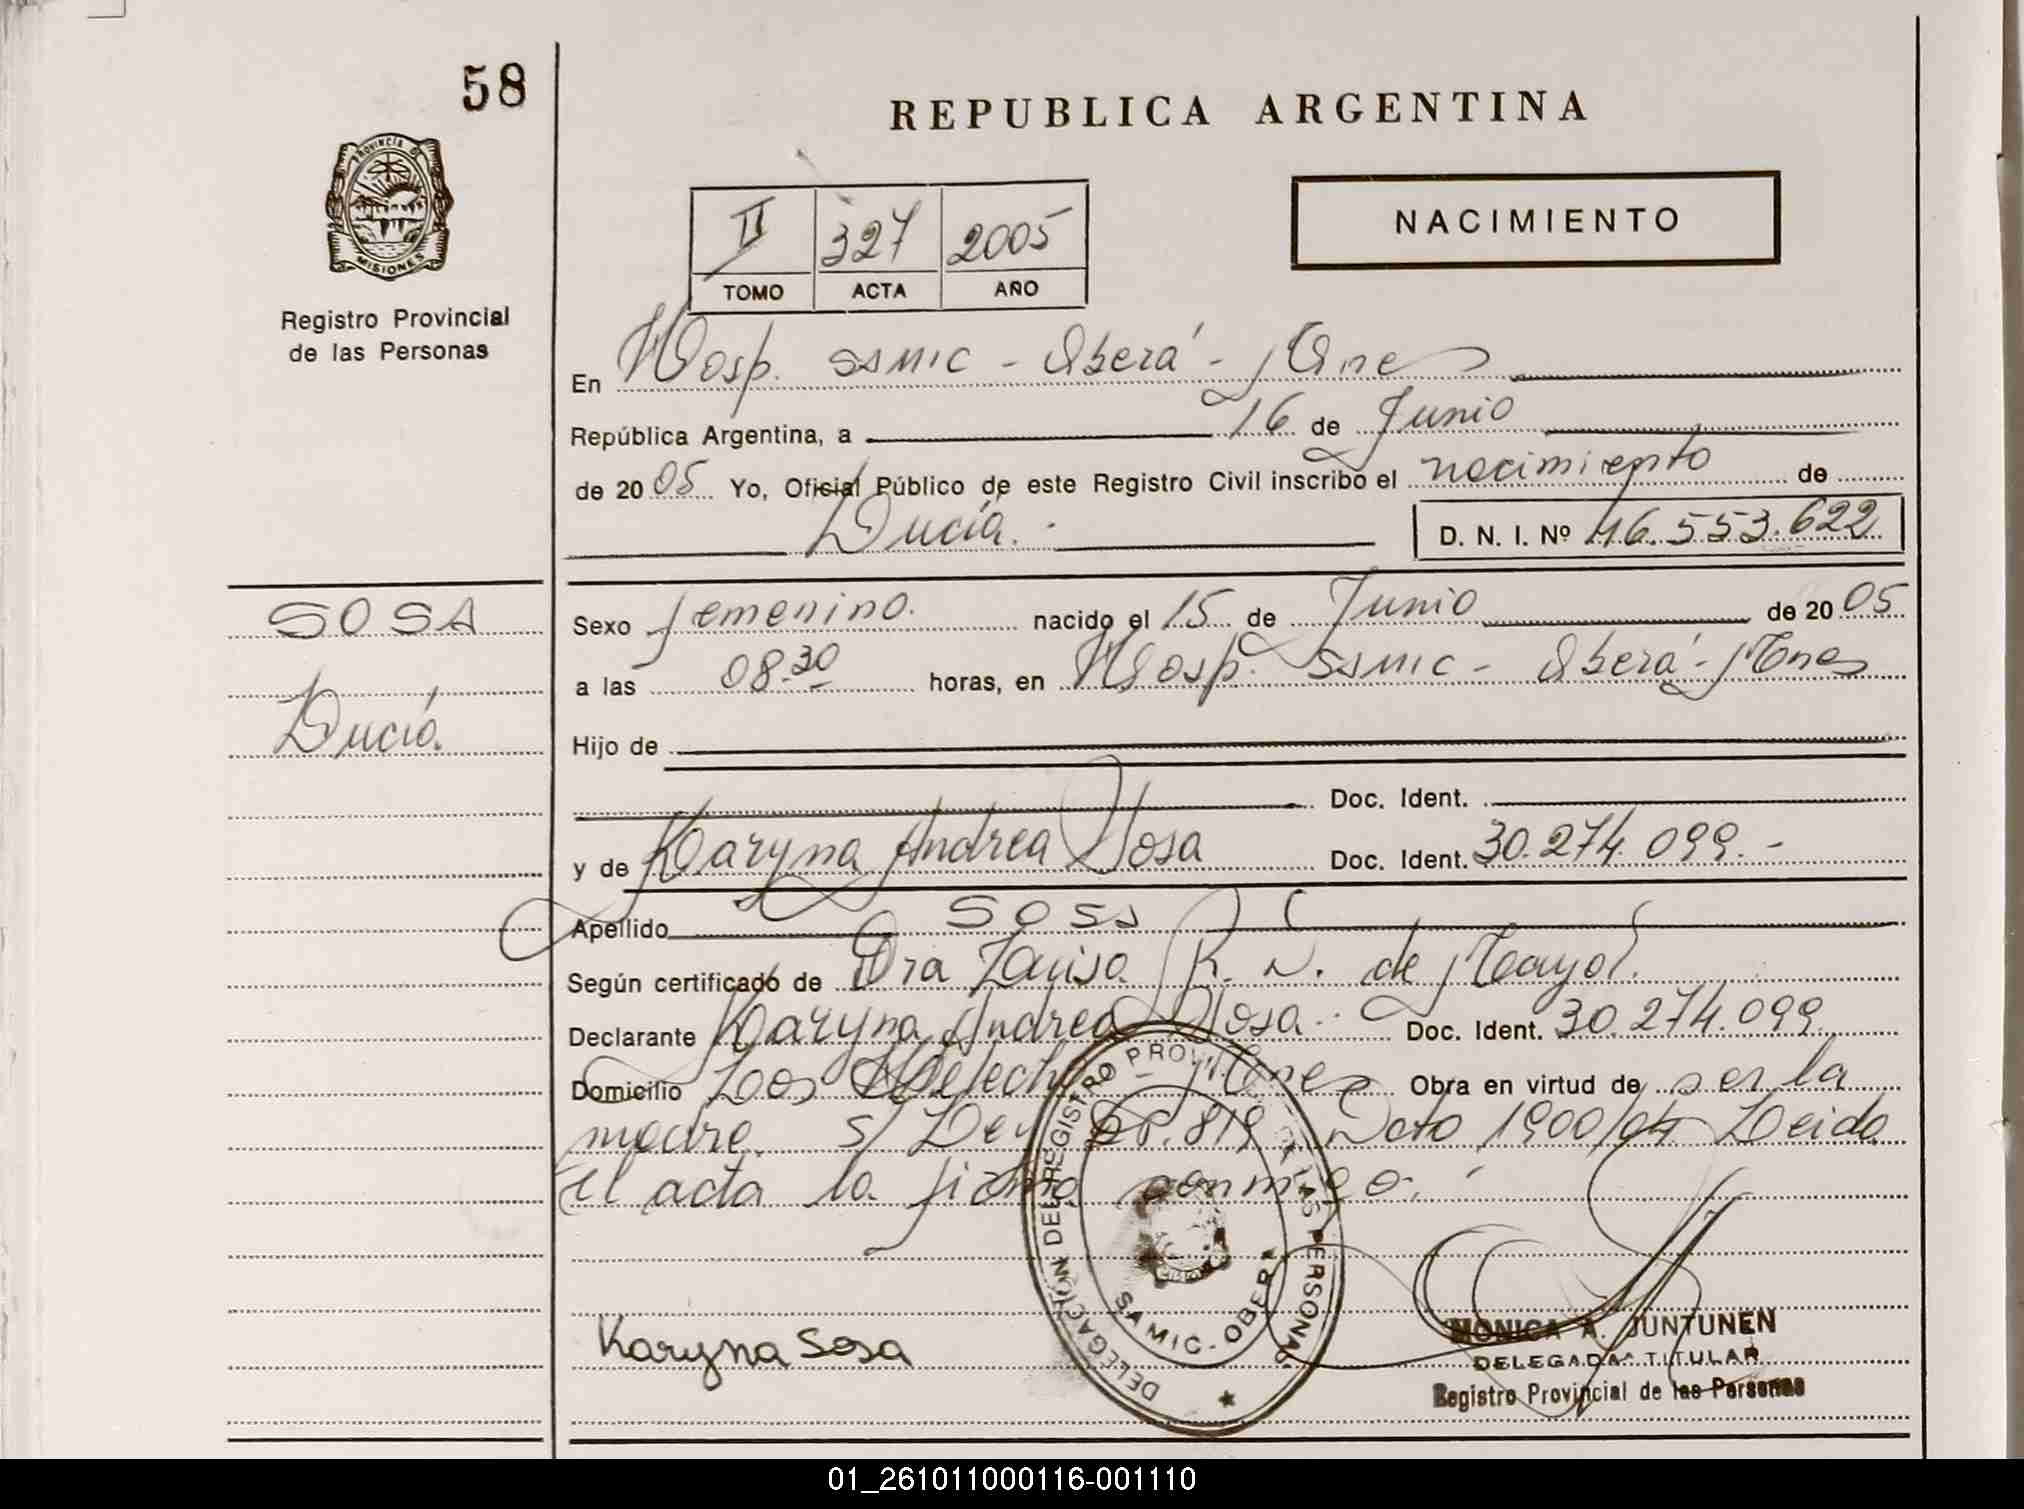 58
REPUBLICA ARGENTINA
PROVINCIA DE
MISIONES
Registro Provincial
de las Personas
NACIMIENTO
II 327 2005
TOMO ACTA AÑO
En Hosp. SAMIC - Oberá - Mnes
República Argentina, a 16 de Junio
de 2005 Yo, Oficial Público de este Registro Civil inscribo el nacimiento de
Lucía. D. N. I. Nº 46.553.622
SOSA
Lucía.
Sexo femenino. nacido el 15 de Junio de 2005
a las 08.30 horas, en Hosp. SAMIC - Oberá - Mnes
Hijo de
Doc. Ident.
y de Karyna Andrea Sosa Doc. Ident. 30.274.099.-
Apellido SOSA
Según certificado de Dra Luisa R. N. de Mayol.
Declarante Karyna Andrea Sosa. Doc. Ident. 30.274.099
Domicilio Los Helechos - Mnes Obra en virtud de ser la
madre. s/ Ley 18.819 Dcto 1900/04 Leida
el acta la firma conmigo.
DELEGACIÓN DEL REGISTRO PROV. DE LAS PERSONAS
SAMIC - OBERÁ
Karyna Sosa
MONICA A. JUNTUNEN
DELEGADA TITULAR
Registro Provincial de las Personas
01_261011000116-001110